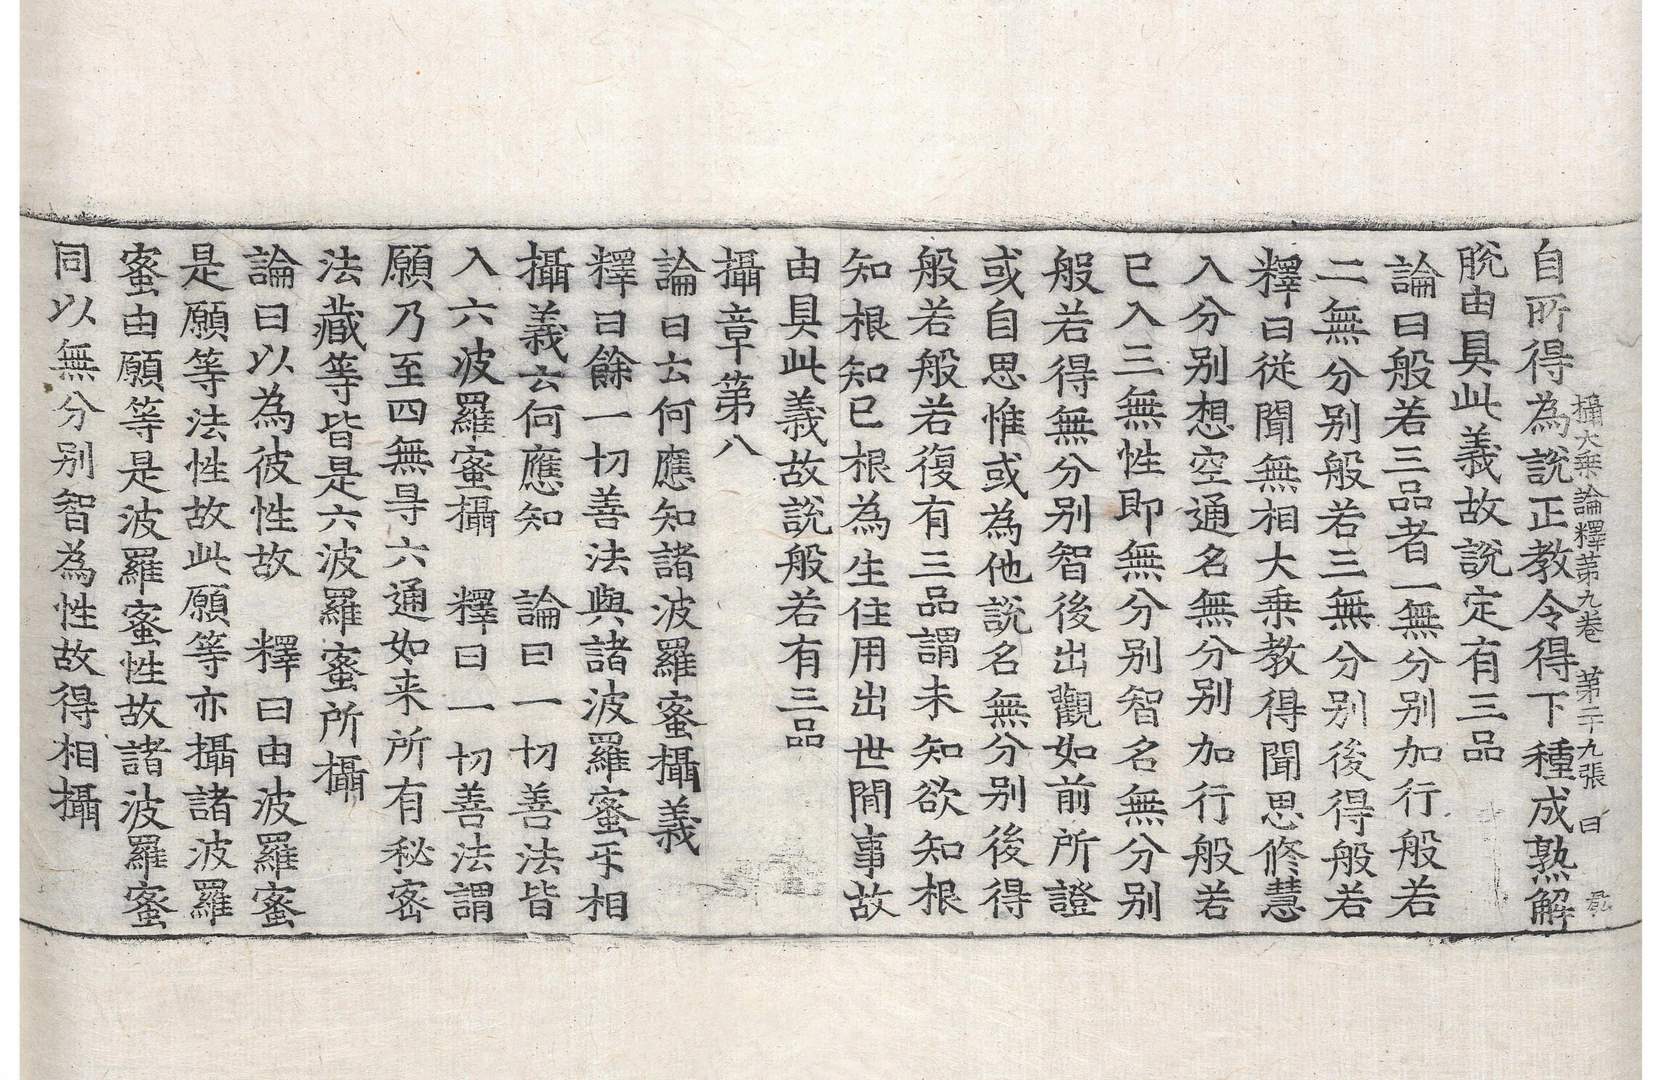 攝大乗論釋苐九卷 苐二十九張 曰
自所得為說正教令得下種成熟解
脫由具此義故說定有三品
論曰般若三品者一無分别加行般若
二無分别般若三無分别後得般若
釋曰從聞無相大乗教得聞思修慧
入分别想空通名無分别加行般若
已入三無性即無分别智名無分别
般若得無分别智後出觀如前所證
或自思惟或為他說名無分别後得
般若般若復有三品謂未知欲知根
知根知已根為生住用出世間事故
由具此義故說般若有三品
攝章第八
論曰云何應知諸波羅蜜攝義
釋曰餘一切善法與諸波羅蜜㸦相
攝義云何應知 論曰一切善法皆
入六波羅蜜攝 釋曰一切善法謂
願乃至四無㝵六通如来所有秘密
法藏等皆是六波羅蜜所攝
論曰以為彼性故 釋曰由波羅蜜
是願等法性故此願等亦攝諸波羅
蜜由願等是波羅蜜性故諸波羅蜜
同以無分别智為性故得相攝